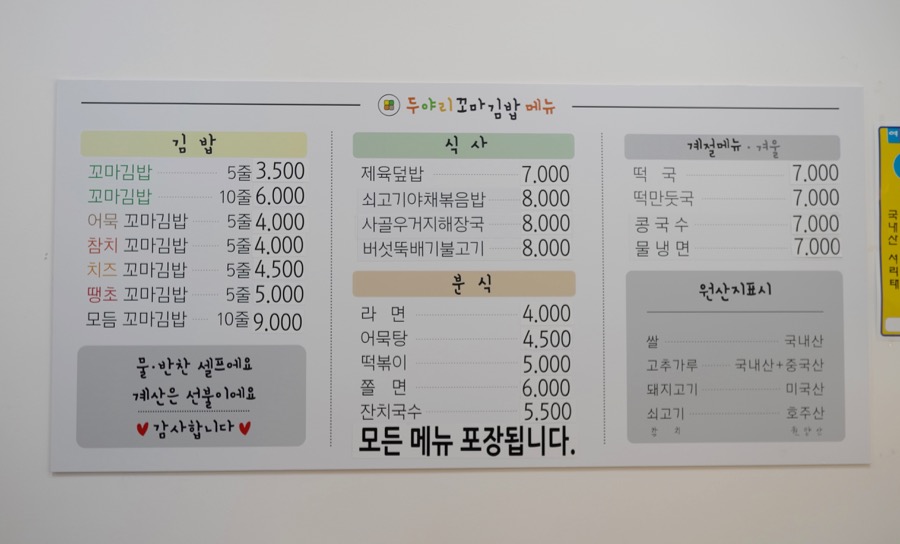 두야리꼬마김밥 메뉴
김 밥
꼬마김밥 5줄 3.500
꼬마김밥 10줄 6.000
어묵 꼬마김밥 5줄 4.000
참치 꼬마김밥 5줄 4.000
치즈 꼬마김밥 5줄 4.500
땡초 꼬마김밥 5줄 5.000
모듬 꼬마김밥 10줄 9.000
물·반찬 셀프에요
계산은 선불이에요
감사합니다
식 사
제육덮밥 7.000
쇠고기야채볶음밥 8.000
사골우거지해장국 8.000
버섯뚝배기불고기 8,000
분 식
라 면 4.000
어묵탕 4,500
떡볶이 5.000
쫄 면 6,000
잔치국수 5.500
모든 메뉴 포장됩니다.
계절메뉴 · 겨울
떡 국 7.000
떡만둣국 7,000
콩 국 수 7,000
물 냉 면 7,000
원산지표시
쌀 국내산
고추가루 국내산+중국산
돼지고기 미국산
쇠고기 호주산
참 치 원양산
국내산 서리태